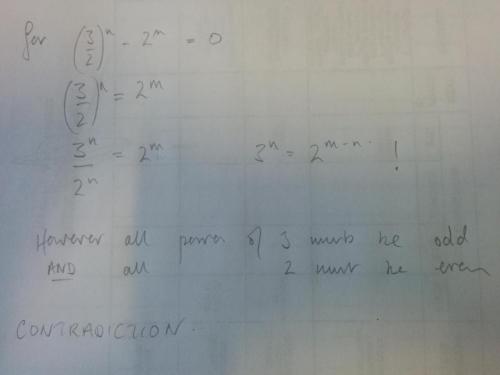 for (3/2)^n - 2^m = 0
(3/2)^n = 2^m
3^n/2^n = 2^m 3^n = 2^{m-n} !
However all power of 3 must be odd
AND all 2 must be even
CONTRADICTION.